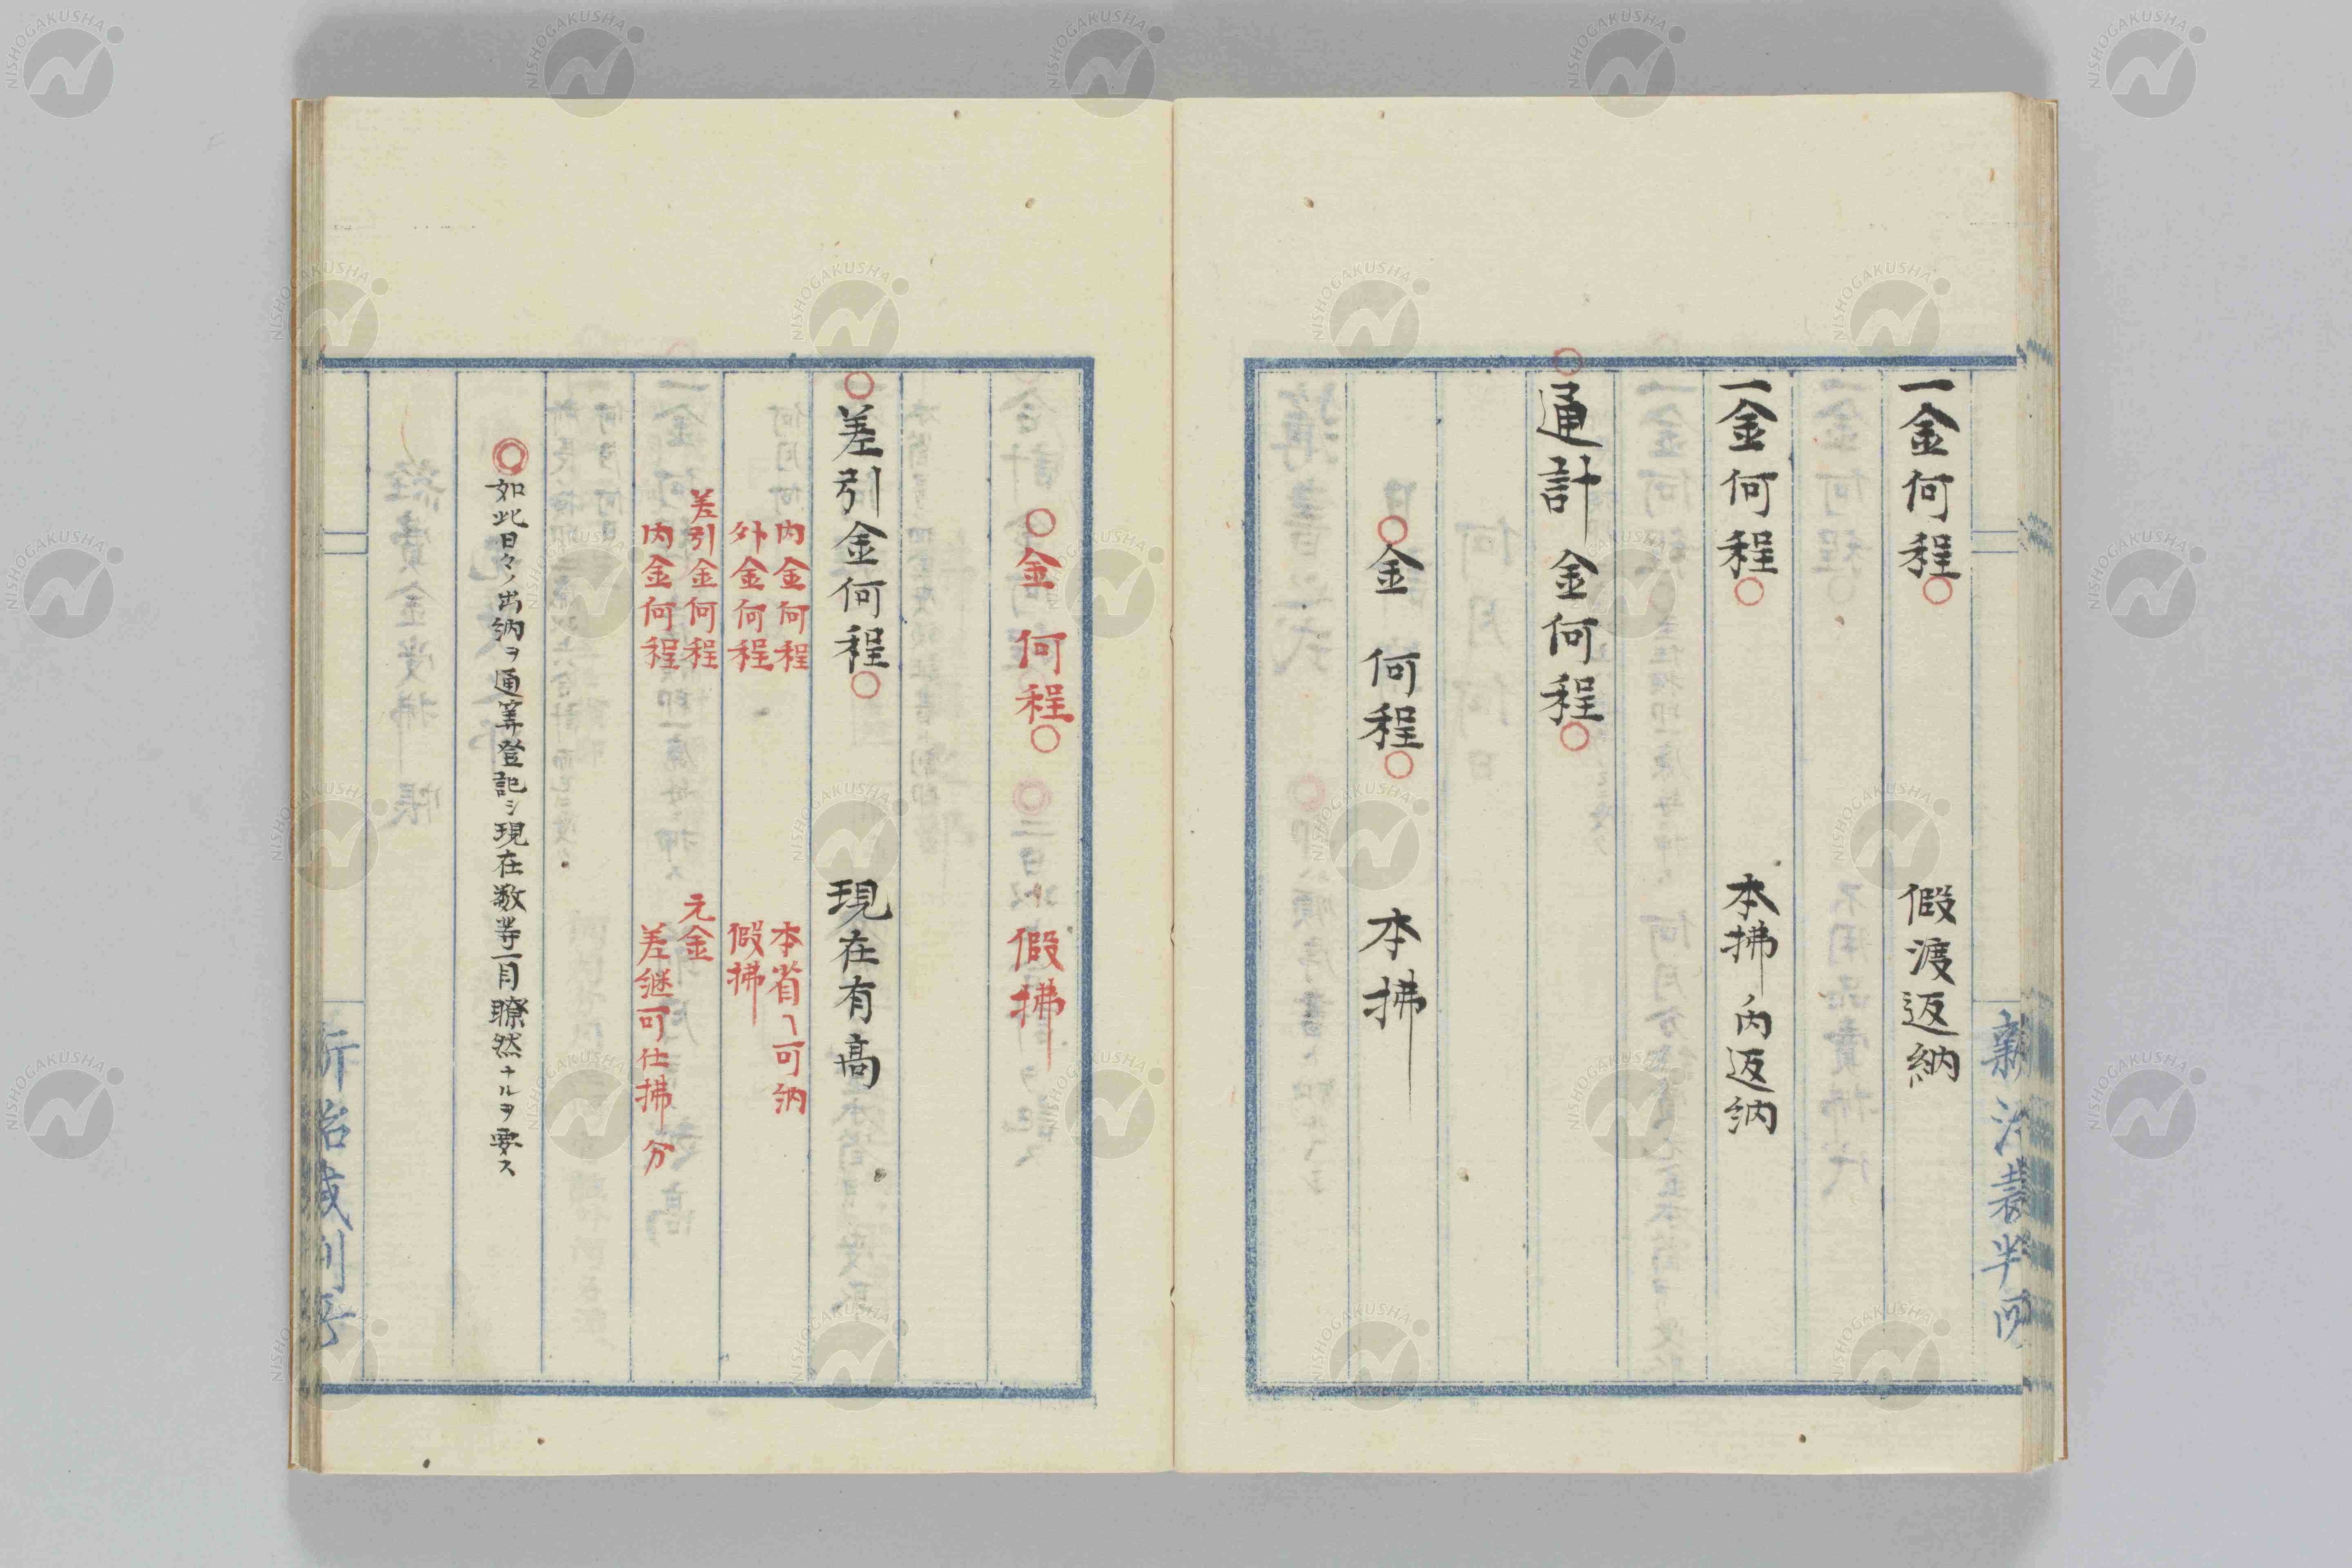 一金何程○　假渡返納
一金何程○　本拂ノ内返納
○通計金何程○
○金何程○　本拂
○金何程○　假拂
○差引金何程○　現在有高
内金何程　本省ヘ可納
外金何程　假拂
差引金何程　元金
内金何程　差継可仕拂分
◎如此日々ノ出納ヲ通筭登記シ現在数等一目瞭然ナルヲ要ス
NISHOGAKUSHA